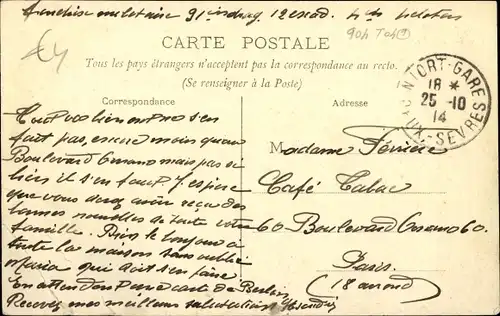 Franchise militaire 91 escad.
CARTE POSTALE
Tous les pays étrangers n'acceptent pas la correspondance au recto.
(Se renseigner à la Poste)
Correspondance
Adresse
NIORT-GARE
18 *
25 - 10
14
DEUX-SEVRES
Tout va bien
fait pas, encore mais quand
Boulevard Ornano mais pas si
bien il s'en faut. J'espère
que vous devez avoir reçu des
bonnes nouvelles de toute votre
famille. Bien le bonjour à
toute la maison sans oublier
Maria qui doit s'en faire
En attendant une carte de Berlin
Recevez mes meilleurs salutations
Madame
Café Tabac
60 Boulevard Ornano 60.
Paris
(18 arrond)